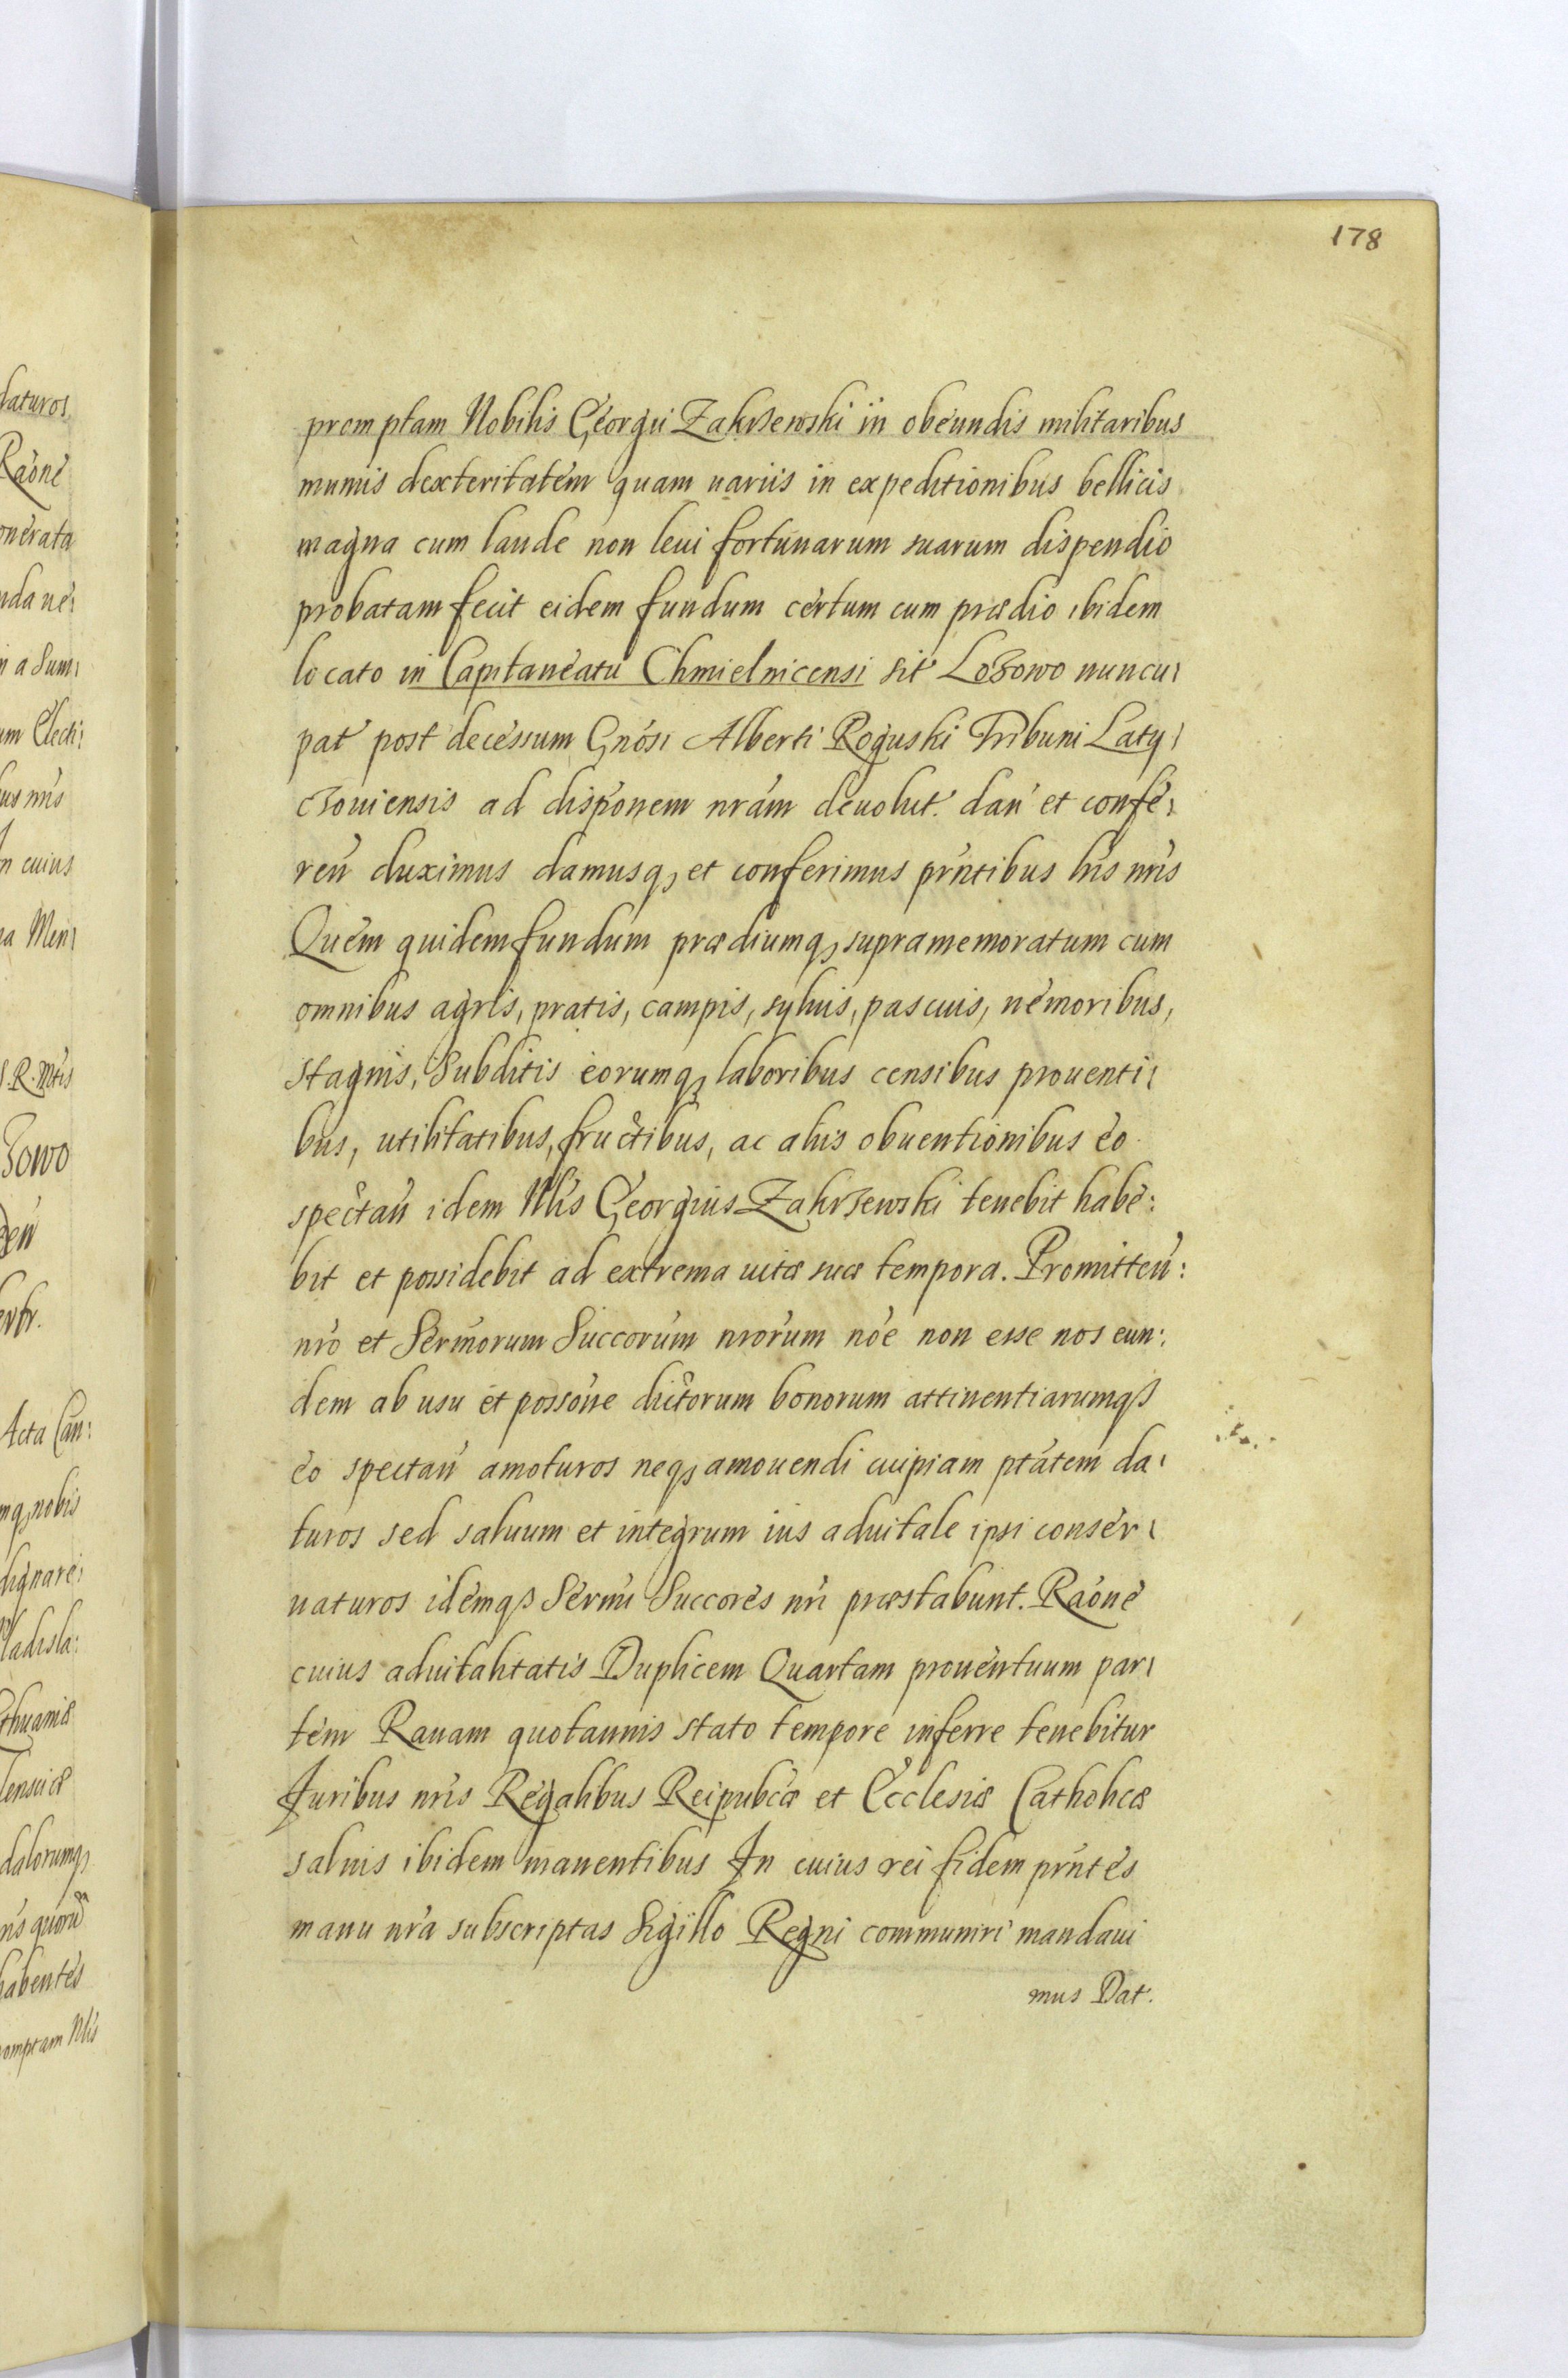 178
promptam Nobilis Georgii Zakrzewski in obeundis militaribus
muniis dexteritatem quam uariis in expeditionibus bellicis
magna cum laude non leui fortunarum suarum dispendio
probatam fecit eidem fundum certum cum prædio ibidem
locato in Capitaneatu Chmielnicensi sit Lozowo nuncu
pat post decessum Gnosi Alberti Roguski Tribuni Laty
czouiensis ad disponem nram deuolut. dan et confe
ren duximus damusq, et conferimus prntibus lris nris
Quem quidem fundum prædiumq, supramemoratum cum
omnibus agris, pratis, campis, syluis, pascuis, nemoribus,
stagnis, Subditis eorumq, laboribus censibus prouenti
bus, utilitatibus, fructibus, ac aliis obuentionibus eo
spectan idem Nlis Georgius Zakrzewski tenebit habe:
bit et possidebit ad extrema uitæ suæ tempora. Promitten:
nro et Sermorum Succorum nrorum noe non esse nos eun:
dem ab usu et possone dictorum bonorum attinentiarumq,
eo spectan amoturos neq, amouendi cuipiam ptatem da
turos sed saluum et integrum ius aduitale ipsi conser
uaturos idemq, Sermi Succores nri præstabunt. Raone
cuius aduitalitatis Duplicem Quartam prouentuum par
tem Rauam quotannis stato tempore inferre tenebitur
Juribus nris Regalibus Reipubcæ et Ecclesiæ Catholicæ
saluis ibidem manentibus In cuius rei fidem prntes
manu nra subscriptas Sigillo Regni communiri mandaui
mus Dat.
daturos
Raone
onerata
us nris
n cuius
S. R. Mtis
zowo
Acta Can:
mq, nobis
dignare
ladisla:
thuaniæ
habentes
omptam Nlis